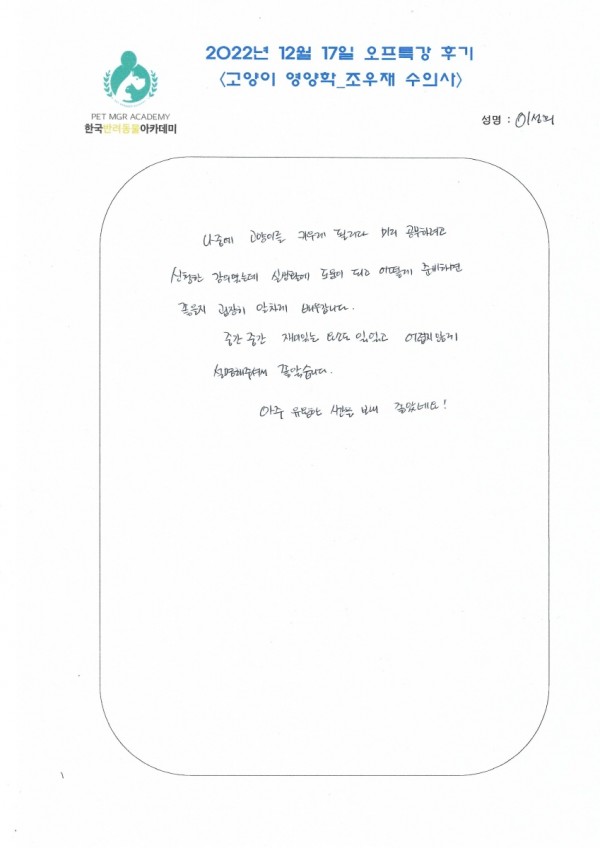 2022년 12월 17일 오프특강 후기
<고양이 영양학_조우재 수의사>
PET MGR ACADEMY
한국반려동물아카데미
성명 :
나중에 고양이를 키우게 될거라 미리 공부하려고
신청한 강의였는데 실생활에 도움이 되고 어떻게 준비하면
좋을지 굉장히 알차게 배워갑니다.
중간 중간 재미있는 요소도 있었고 어렵지 않게
설명해주셔서 좋았습니다.
아주 유용한 시간을 보내 좋았네요!